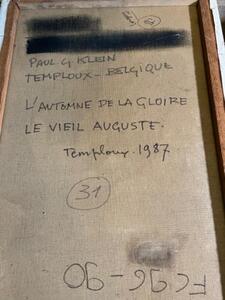 PAUL G KLEIN
TEMPLOUX - BELGIQUE
L'AUTOMNE DE LA GLOIRE
LE VIEIL AUGUSTE.
Temploux. 1987.
31
FC96-90